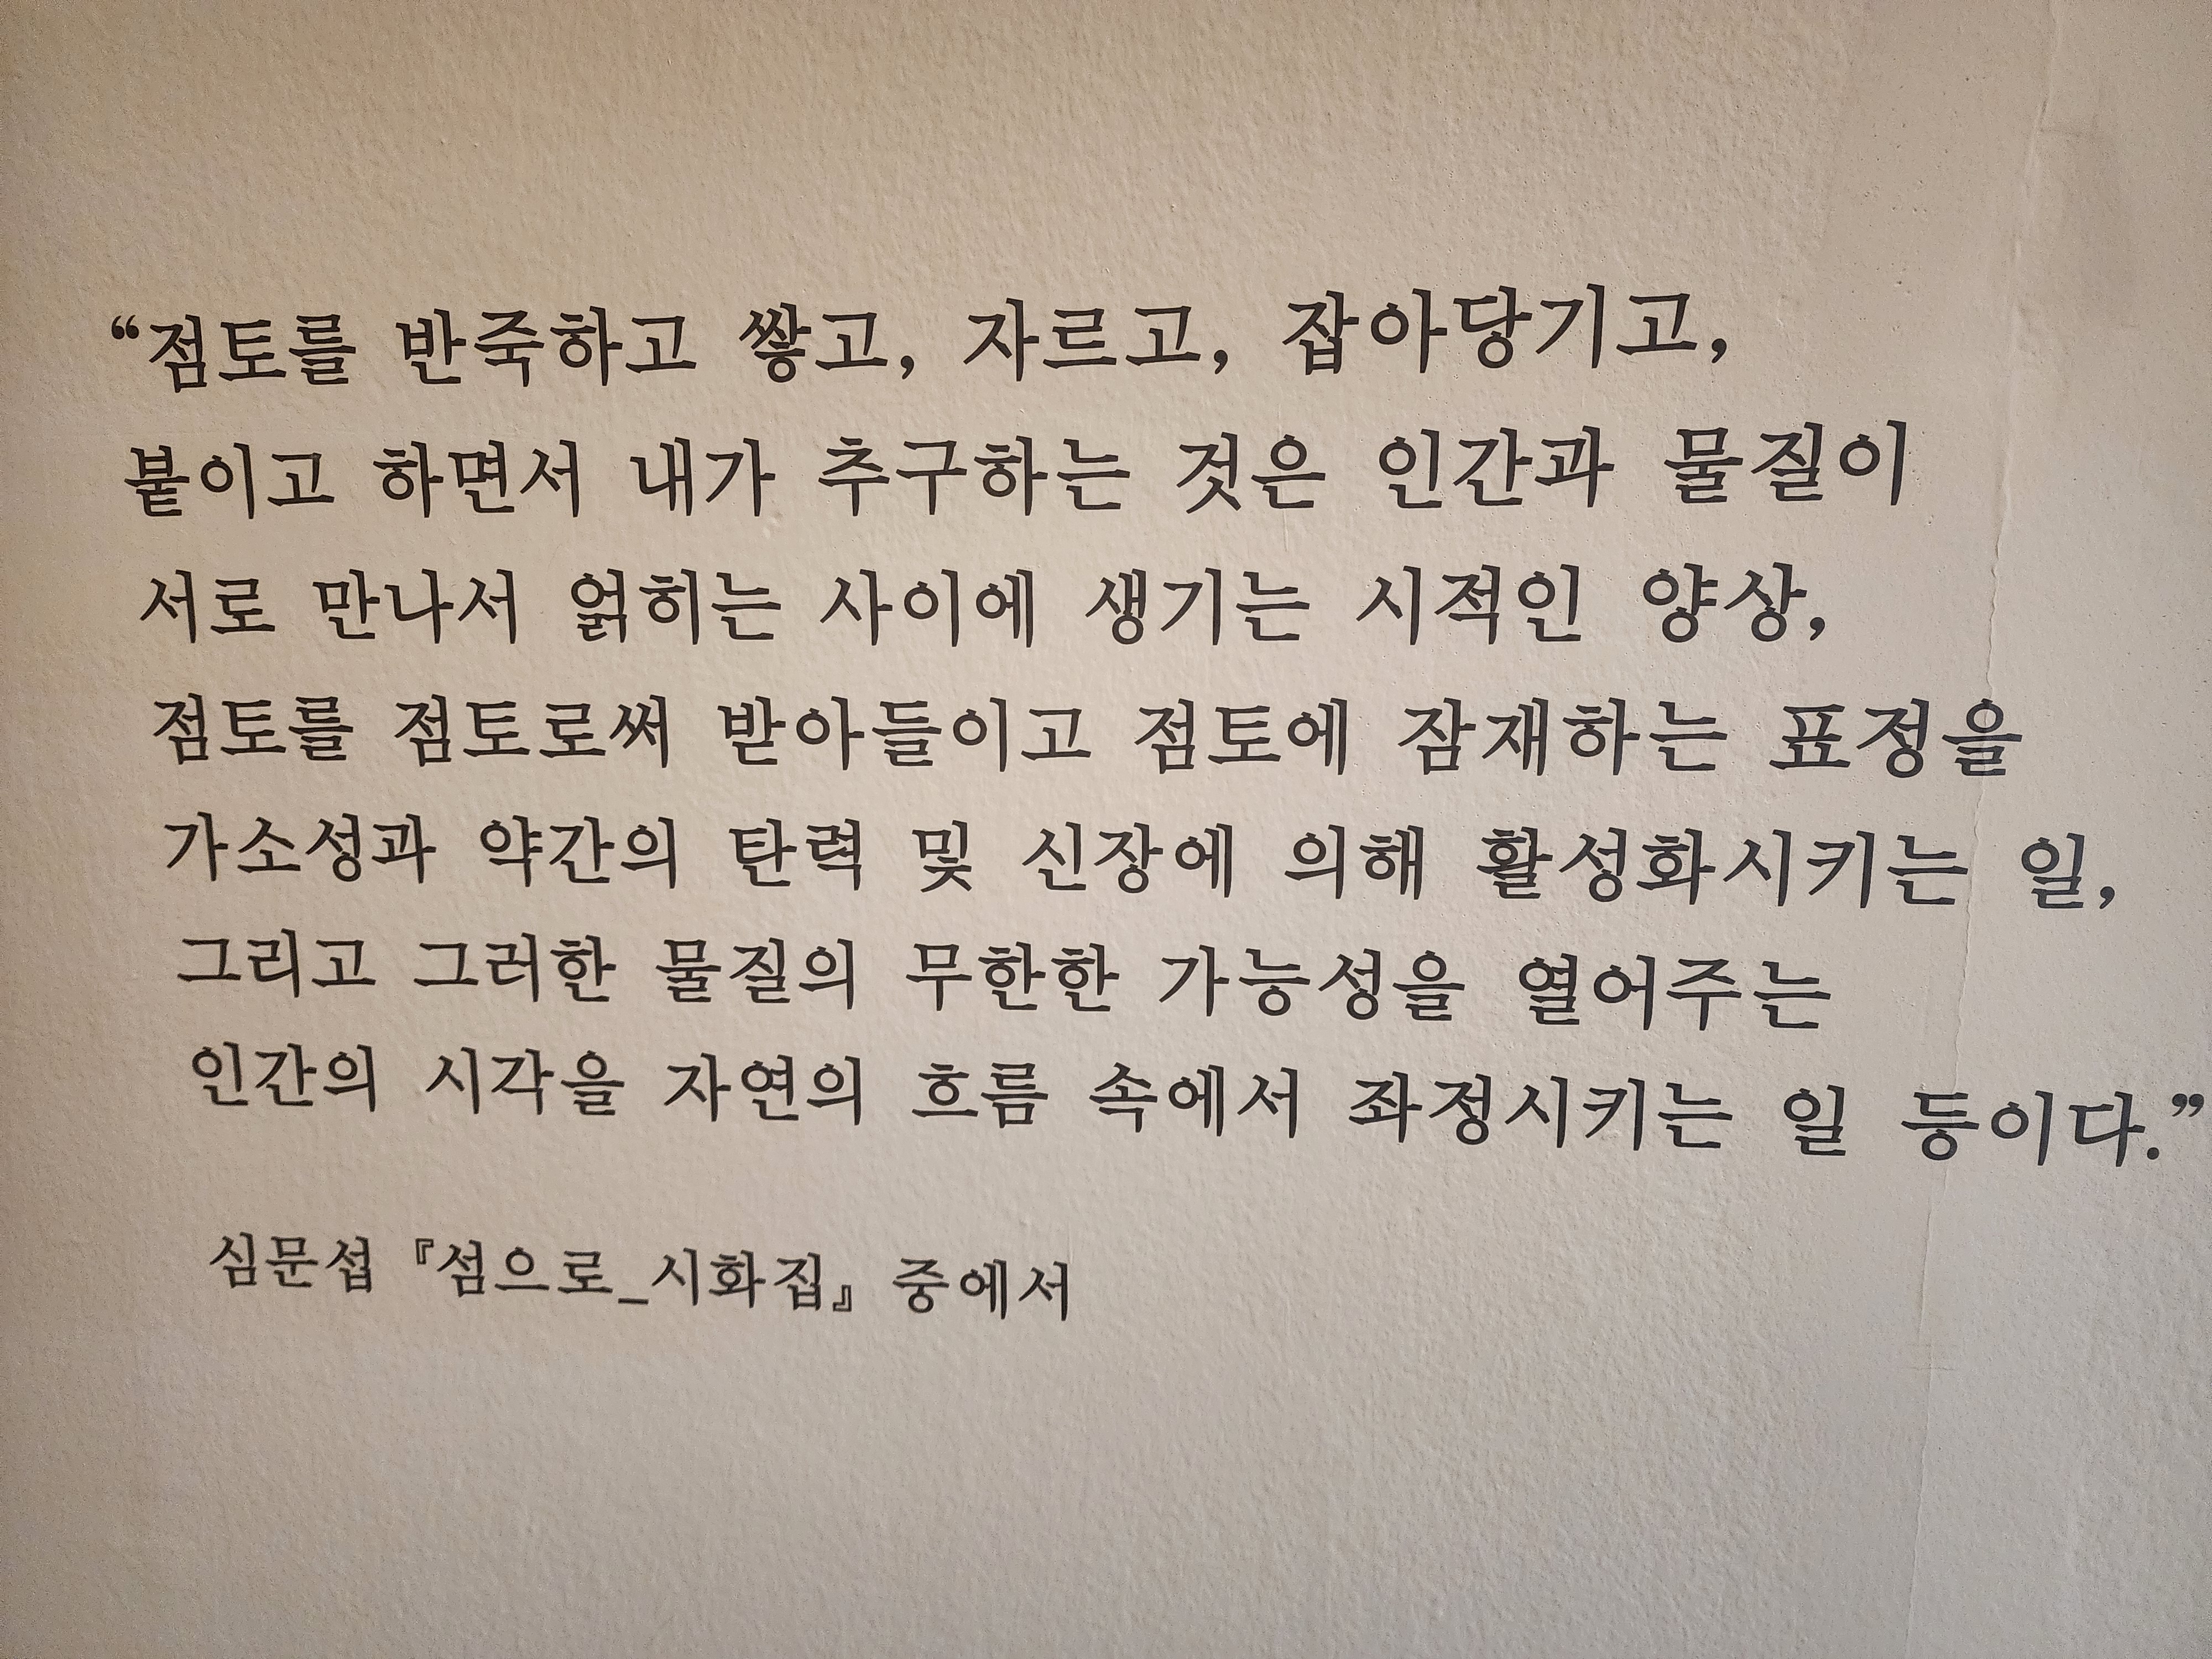 “점토를 반죽하고 쌓고, 자르고, 잡아당기고,
붙이고 하면서 내가 추구하는 것은 인간과 물질이
서로 만나서 얽히는 사이에 생기는 시적인 양상,
점토를 점토로써 받아들이고 점토에 잠재하는 표정을
가소성과 약간의 탄력 및 신장에 의해 활성화시키는 일,
그리고 그러한 물질의 무한한 가능성을 열어주는
인간의 시각을 자연의 흐름 속에서 좌정시키는 일 등이다.”
심문섭 『섬으로_시화집』 중에서